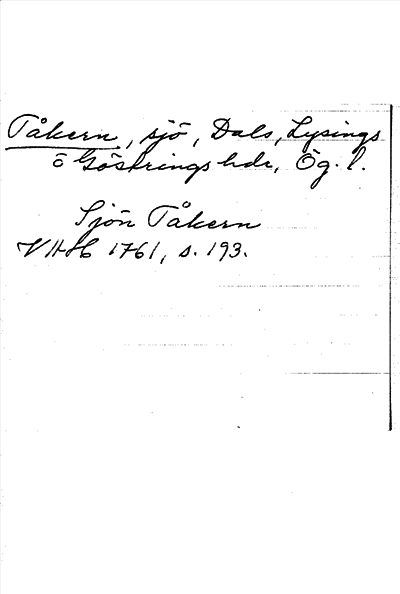 Tåkern, sjö, Dals, Lysings
o Göstrings hdr, Ög. l.
Sjön Tåkern
VHAH 1761, s. 193.